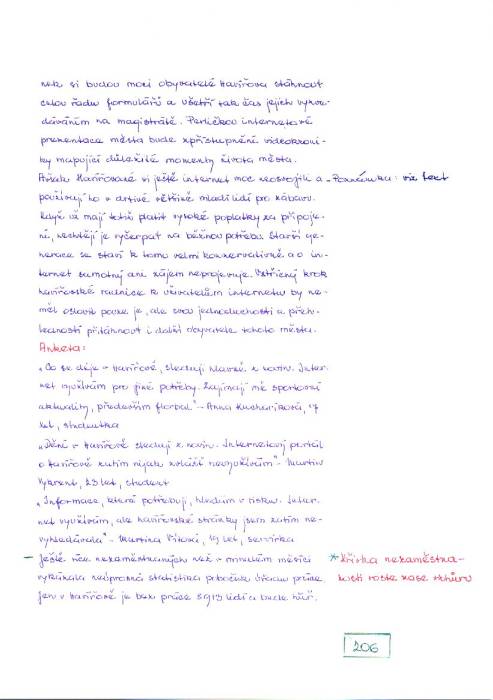 nete si budou moci obyvatelé Havířova stáhnout
celou řadu formulářů a ušetří tak čas jejich vyzve-
dáváním na magistrátě. Perličkou internetové
prezentace města bude zpřístupnění videokroni-
ky mapující důležité momenty života města.
Avšak Havířované si ještě internet moc neosvojili a - Poznámka: viz text
používají ho v drtivé většině mladí lidi pro zábavu.
Když už mají totiž platit vysoké poplatky za připoje-
ní, nechtějí je vyčerpat na běžnou potřebu. Starší ge-
nerace se staví k tomu velmi konzervativně a o in-
ternet samotný ani zájem neprojevuje. Vstřícný krok
havířovské radnice k uživatelům internetu by ne-
měl oslovit pouze je, ale svou jednoduchostí a přeh-
ledností přitáhnout i další obyvatele tohoto města.
Anketa:
„Co se děje v Havířově, sleduji hlavně z novin. Inter-
net využívám pro jiné potřeby. Zajímají mě sportovní
aktuality, především florbal" - Anna Kucharíková, 17
let, studentka
„Dění v Havířově sleduji z novin. Internetový portál
o Havířově zatím nijak zvlášť nevyužívám" - Martin
Vybrent, 23 let, student
„Informace, které potřebuji, hledám v tisku. Inter-
net využívám, ale havířovské stránky jsem zatím ne-
vyhledávala" - Martina 19 let, servírka
- Ještě více nezaměstnaných než v minulém měsíci * Křivka nezaměstna-
vykázala neúprosná statistika pobočky Úřadu práce. nosti roste zase vzhůru
Jen v Havířově je bez práce 8 913 lidí a bude hůř.
206